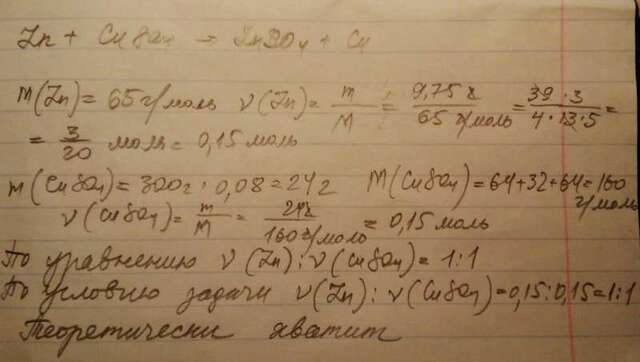 Zn + CuSO4 → ZnSO4 + Cu
m(Zn) = 65 г/моль ν(Zn) = m/M = 9,75 г/65 г/моль = 39·3/4·13·5 =
= 3/20 моль = 0,15 моль
m(CuSO4) = 300г · 0,08 = 24г M(CuSO4) = 64+32+64=160 г/моль
ν(CuSO4) = m/M = 24г/160 г/моль = 0,15 моль
По уравнению ν(Zn):ν(CuSO4) = 1:1
По условию задачи ν(Zn):ν(CuSO4)=0,15:0,15=1:1
Теоретически хватит